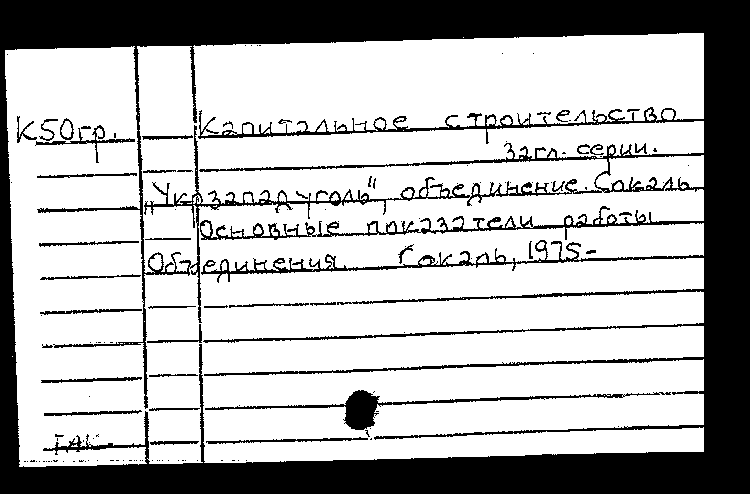 К50гр. Капитальное строительство
загл. серии.
„Укрзападуголь", объединение. Сокаль.
Основные показатели работы
Объединения. Сокаль, 1975-